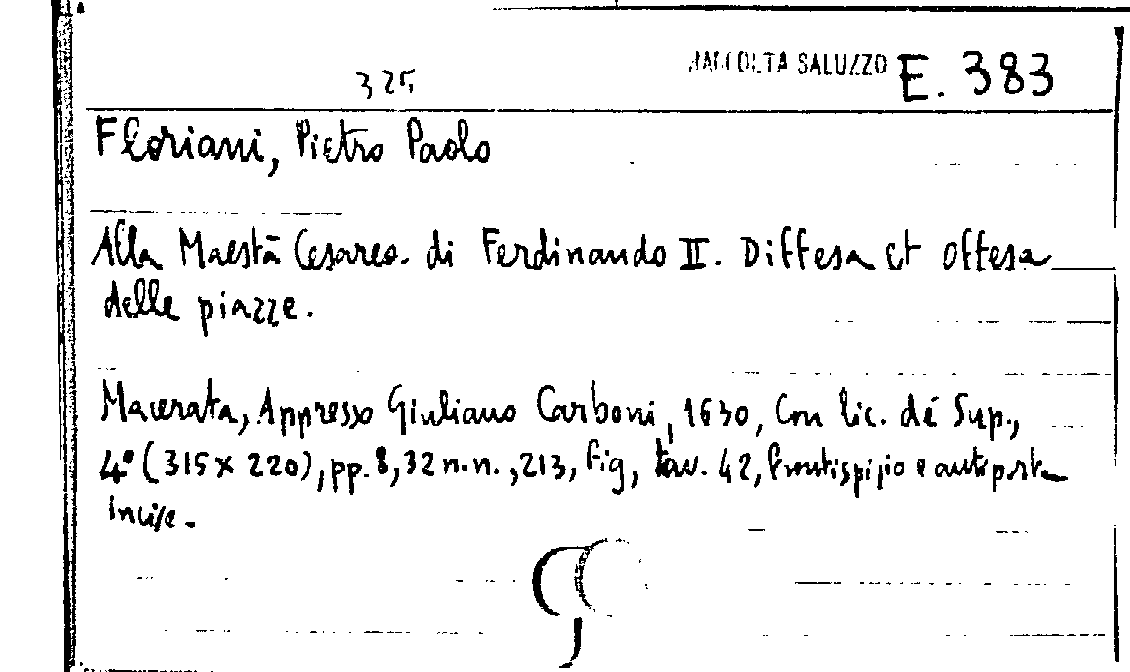 RACCOLTA SALUZZO E. 383
325
Floriani, Pietro Paolo
Alla Maestà Cesarea. di Ferdinando II. Diffesa et offesa
delle piazze.
Macerata, Appresso Giuliano Carboni, 1630, Con lic. dé Sup.,
4° (315 x 220), pp. 8, 32 n.n., 213, fig, tav. 42, frontispizio e antiporta
incise.